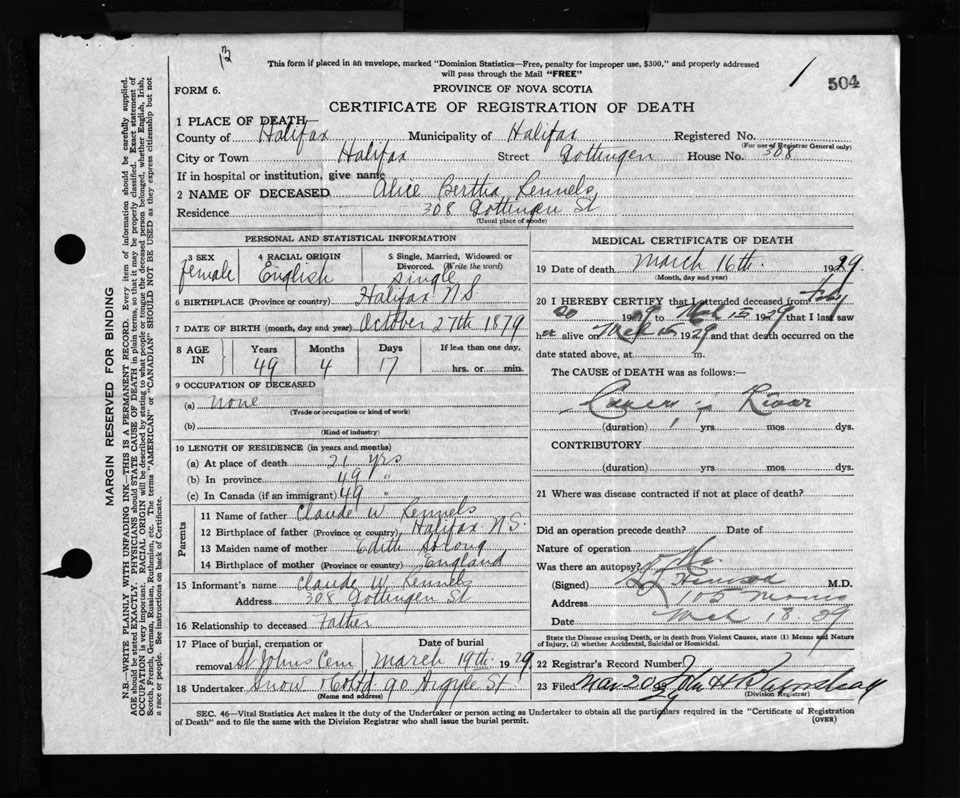 12
This form if placed in an envelope, marked "Dominion Statistics—Free, penalty for improper use, $300," and properly addressed
will pass through the Mail "FREE"
1
504
FORM 6.
PROVINCE OF NOVA SCOTIA
CERTIFICATE OF REGISTRATION OF DEATH
1 PLACE OF DEATH
County of Halifax Municipality of Halifax Registered No.
(For use of Registrar General only)
City or Town Halifax Street Gottingen House No. 308
If in hospital or institution, give name
2 NAME OF DECEASED Alice Bertha Kennels
Residence 308 Gottingen St
(Usual place of abode)
PERSONAL AND STATISTICAL INFORMATION
3 SEX 4 RACIAL ORIGIN 5 Single, Married, Widowed or
Divorced. (Write the word)
Female English Single
6 BIRTHPLACE (Province or country) Halifax N S
7 DATE OF BIRTH (month, day and year) October 27th 1879
8 AGE IN Years Months Days If less than one day,
49 4 17 hrs. or min.
9 OCCUPATION OF DECEASED
(a) none
(Trade or occupation or kind of work)
(b)
(Kind of industry)
10 LENGTH OF RESIDENCE (in years and months)
(a) At place of death 21 yrs
(b) In province 49 "
(c) In Canada (if an immigrant) 49 "
Parents
11 Name of father Claude W Kennels
12 Birthplace of father (Province or country) Halifax N S.
13 Maiden name of mother Edith Strong
14 Birthplace of mother (Province or country) England
15 Informant's name Claude W Kennels
Address 308 Gottingen St
16 Relationship to deceased Father
17 Place of burial, cremation or Date of burial
removal St Johns Cem March 19th 1929
18 Undertaker Snow & Co Ltd 90 Argyle St
(Name and address)
MEDICAL CERTIFICATE OF DEATH
19 Date of death March 16th 1929.
(Month, day and year)
20 I HEREBY CERTIFY that I attended deceased from Feby
20 1929 to Mch 15 1929 that I last saw
her alive on Mch 15 1929 and that death occurred on the
date stated above, at m.
The CAUSE of DEATH was as follows:—
Cancer of Liver
(duration) yrs mos dys.
CONTRIBUTORY
(duration) yrs. mos dys.
21 Where was disease contracted if not at place of death?
Did an operation precede death? Date of
Nature of operation
Was there an autopsy? No
(Signed) M.D.
Address 105 Morris
Date Mch 18. 29
State the Disease causing Death, or in death from Violent Causes, state (1) Means and Nature
of Injury, (2) whether Accidental, Suicidal or Homicidal.
22 Registrar's Record Number
23 Filed Mar 20 29 John H
(Division Registrar)
SEC. 46—Vital Statistics Act makes it the duty of the Undertaker or person acting as Undertaker to obtain all the particulars required in the "Certificate of Registration
of Death" and to file the same with the Division Registrar who shall issue the burial permit.
(OVER)
MARGIN RESERVED FOR BINDING
N.B.—WRITE PLAINLY WITH UNFADING INK—THIS IS A PERMANENT RECORD. Every item of information should be carefully supplied.
AGE should be stated EXACTLY. PHYSICIANS should STATE CAUSE OF DEATH in plain terms, so that it may be properly classified. Exact statement of
OCCUPATION is very important. RACIAL ORIGIN will be described by stating to what people or tongue the deceased person belonged, whether English, Irish,
Scotch, French, German, Russian, Ruthenian, etc. The terms "AMERICAN" or "CANADIAN" SHOULD NOT BE USED as they express citizenship but not
a race or people. See instructions on back of Certificate.